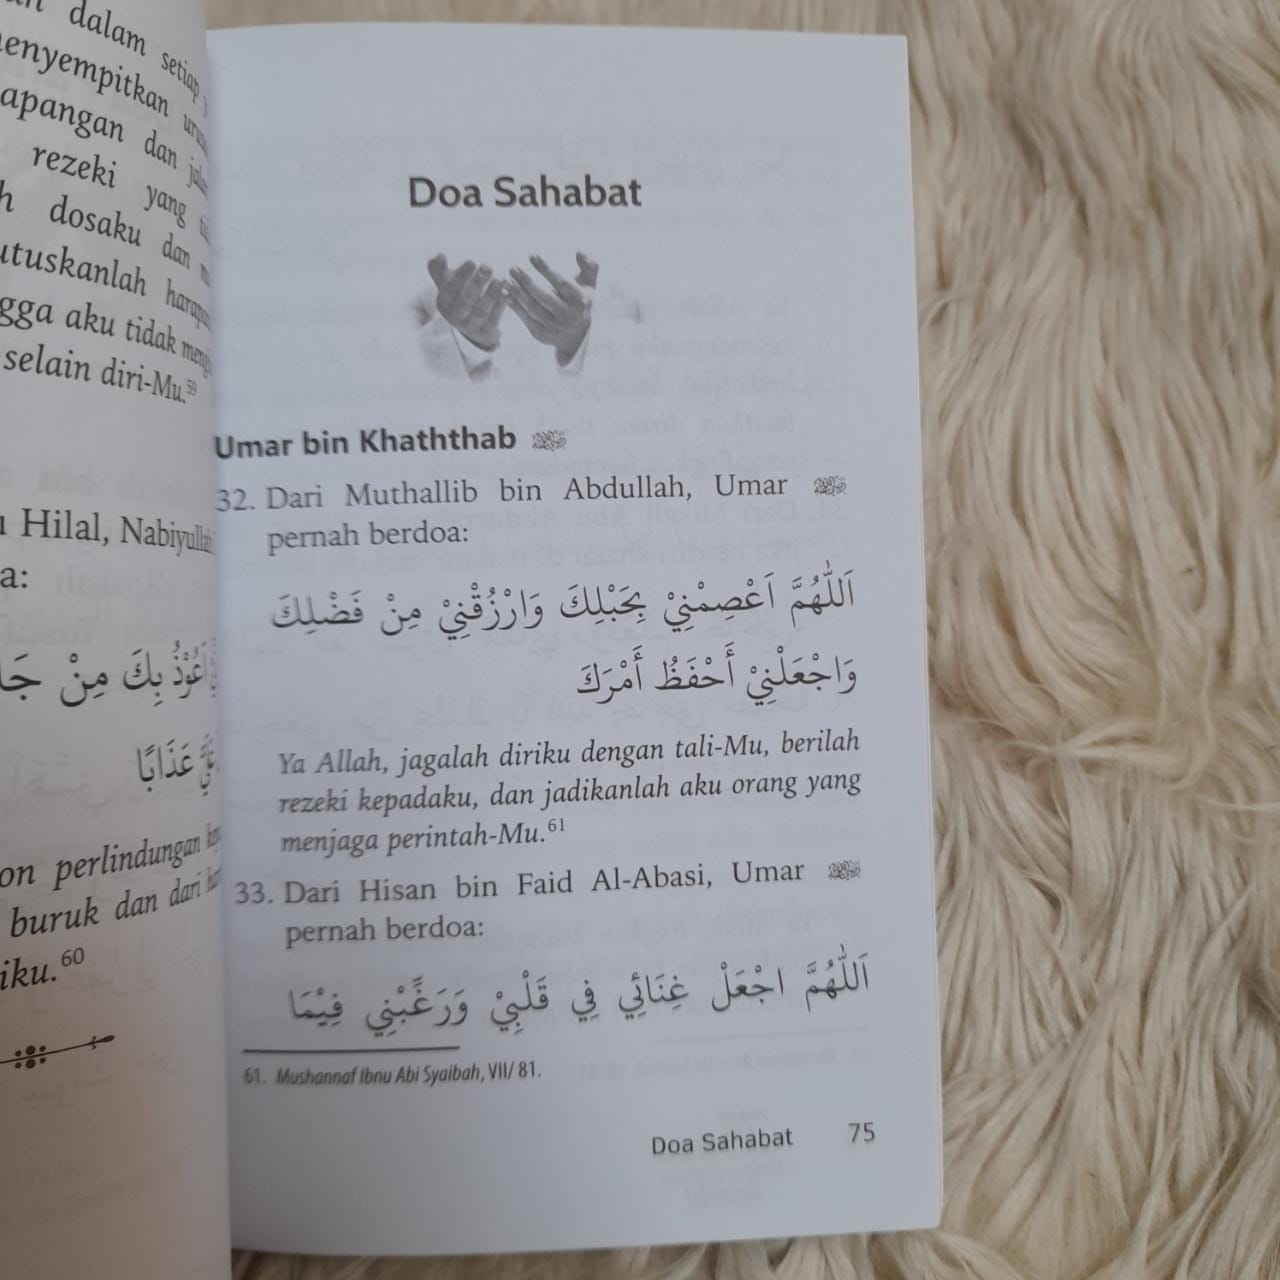 dalam setiap
menyempitkan
apangan dan
rezeki yang
dosaku dan
utuskanlah
gga aku tidak
selain diri-Mu.59
Hilal, Nabiyullah
a:
بِكَ مِنْ
عَذَابًا
on perlindungan
buruk dan dari
iku.60
Doa Sahabat
Umar bin Khaththab
32. Dari Muthallib bin Abdullah, Umar
pernah berdoa:
اَللّٰهُمَّ اَعْصِمْنِيْ بِحَبْلِكَ وَارْزُقْنِيْ مِنْ فَضْلِكَ
وَاجْعَلْنِيْ أَحْفَظُ أَمْرَكَ
Ya Allah, jagalah diriku dengan tali-Mu, berilah
rezeki kepadaku, dan jadikanlah aku orang yang
menjaga perintah-Mu.61
33. Dari Hisan bin Faid Al-Abasi, Umar
pernah berdoa:
اَللّٰهُمَّ اجْعَلْ غِنَائِي فِي قَلْبِيْ وَرَغِّبْنِي فِيْمَا
61. Mushannaf Ibnu Abi Syaibah, VII/ 81.
Doa Sahabat 75